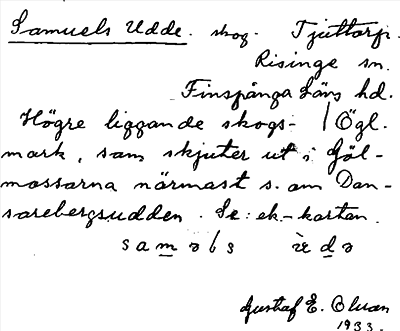 Samuels Udde. skog. Tjuttorp.
Risinge sn.
Finspånga Läns hd.
Högre liggande skogs- / Ögl.
mark, som skjuter ut i Göl-
mossarna närmast s. om Dan-
sarebergsudden. Se: ek.-kartan.
Gustaf E.
1933.